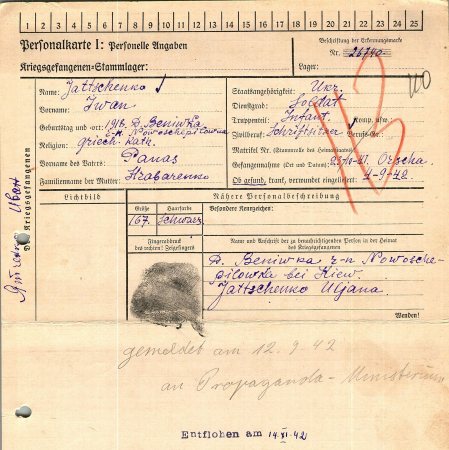 1 2 3 4 5 6 7 8 9 10 11 12 13 14 15 16 17 18 19 20 21 22 23 24 25
Personalkarte I: Personelle Angaben
Kriegsgefangenen-Stammlager:
Beschriftung der Erkennungsmarke
Nr. 26740
Lager:
Des Kriegsgefangenen
Name: Jattschenko
Vorname: Iwan
Geburtstag und -ort: 1916. D. Beniwka
Religion: Griech. Kath.
Vorname des Vaters: Panas
Familienname der Mutter: Skabarenko
Staatsangehörigkeit: Ukr.
Dienstgrad: Soldat
Truppenteil: Infant. Komp. usw.:
Zivilberuf: Schriftsetzer Berufs-Gr.:
Matrikel Nr. (Stammrolle des Heimatstaates):
Gefangennahme (Ort und Datum): Orscha.
Ob gesund, krank, verwundet eingeliefert: 4-9-42
Lichtbild
Nähere Personalbeschreibung
Größe
Haarfarbe
Besondere Kennzeichen:
167. Schwarz
Fingerabdruck
des rechten! Zeigefingers
Name und Anschrift der zu benachrichtigenden Person in der Heimat
des Kriegsgefangenen
D. Beniwka r-n Nowosche-
pilowka bei Kiew.
Jattschenko Uljana.
Wenden!
gemeldet am 12.9.42
an Propaganda-Ministerium
Entflohen am 14.XI.42